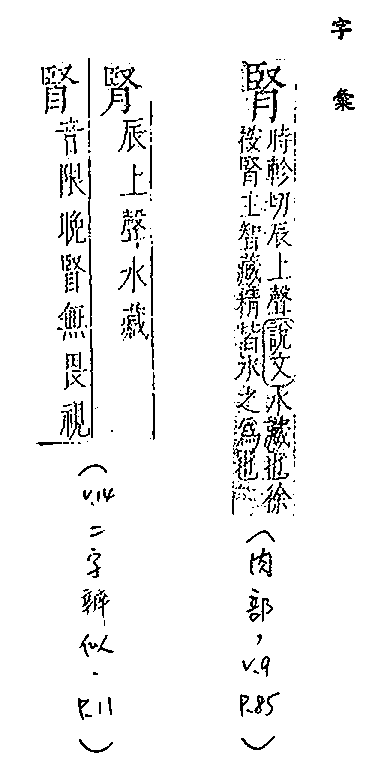 字彙
腎 時軫切辰上聲說文水藏也徐
後腎主智藏精皆水之爲也
(肉部,v.9 P.85)
腎 辰上聲水藏
䀂 音限晚䀂無畏視
(v.14 二字辨似.P.11)